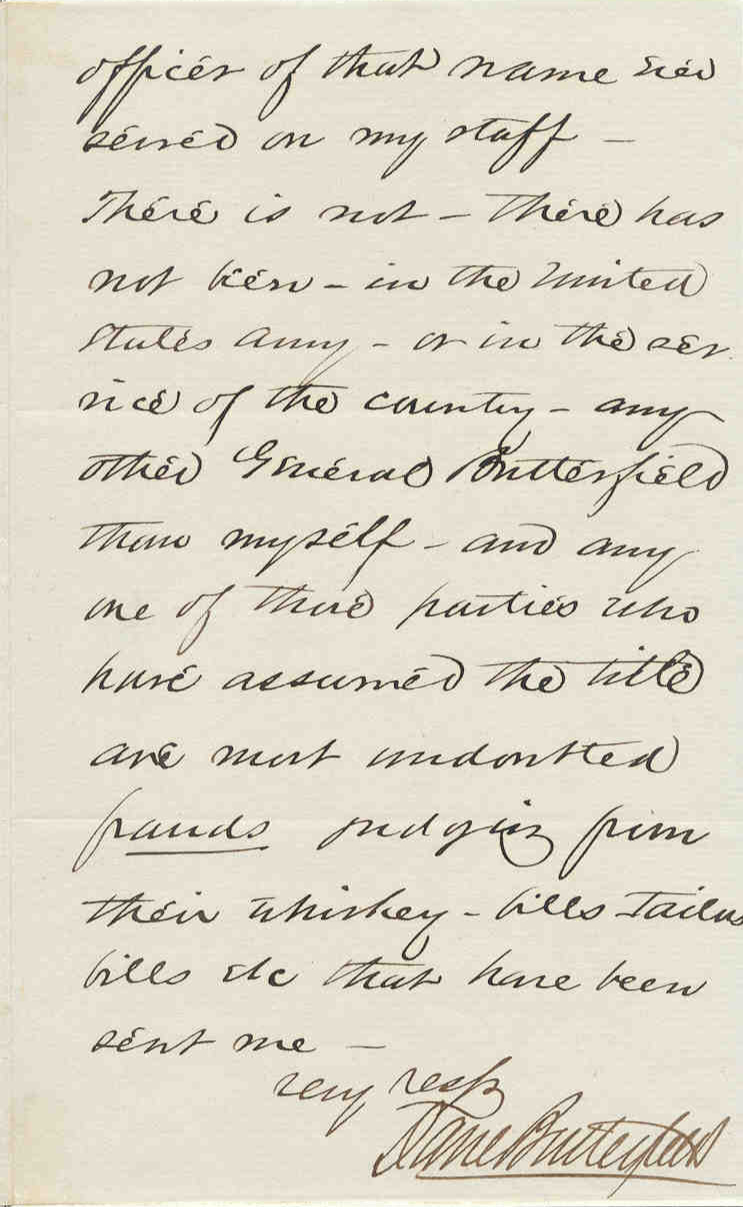 officer of that name ever
served on my staff –
There is not – there has
not been – in the United
States Army – or in the ser
vice of the country – any
other General Butterfield
than myself – and any
one of those parties who
have assumed the title
are most undoubted
frauds judging from
their whiskey – bills Tailors
bills etc that have been
sent me –
very resp
Danl Butterfield